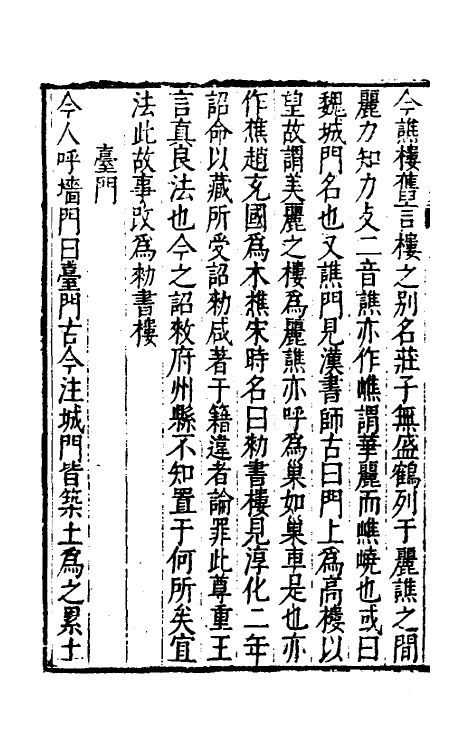 今譙樓舊言樓之别名莊子無盛鶴列于麗譙之間
麗力知力支二音譙亦作嶕謂華麗而嶕嶢也或曰
魏城門名也又譙門見漢書師古曰門上為高樓以
望故謂美麗之樓為麗譙亦呼為巢如巢車是也亦
作樵趙充國為木樵宋時名曰勑書樓見淳化二年
詔命以藏所受詔勑咸著于籍違者論罪此尊重王
言真良法也今之詔敕府州縣不知置于何所矣宜
法此故事改為勑書樓
臺門
今人呼墻門曰臺門古今注城門皆築土為之累土